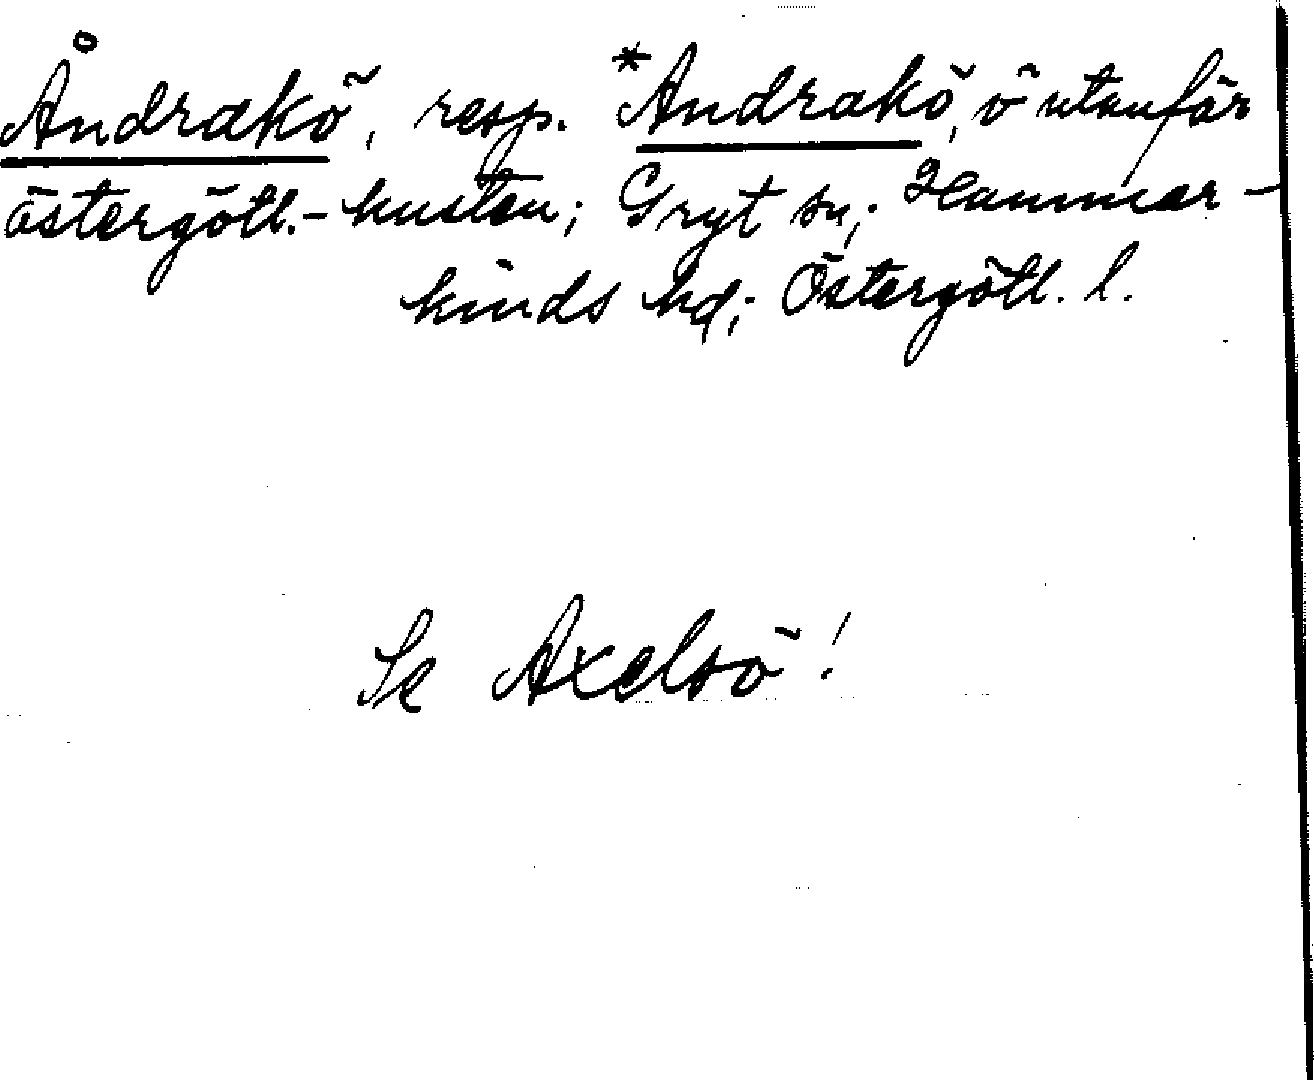 Åndrakö, resp. *Andrakö, ö utanför
östergötl.-kusten; Gryt sn; Hammar-
kinds hd; Östergötl. l.
Se Axelsö!